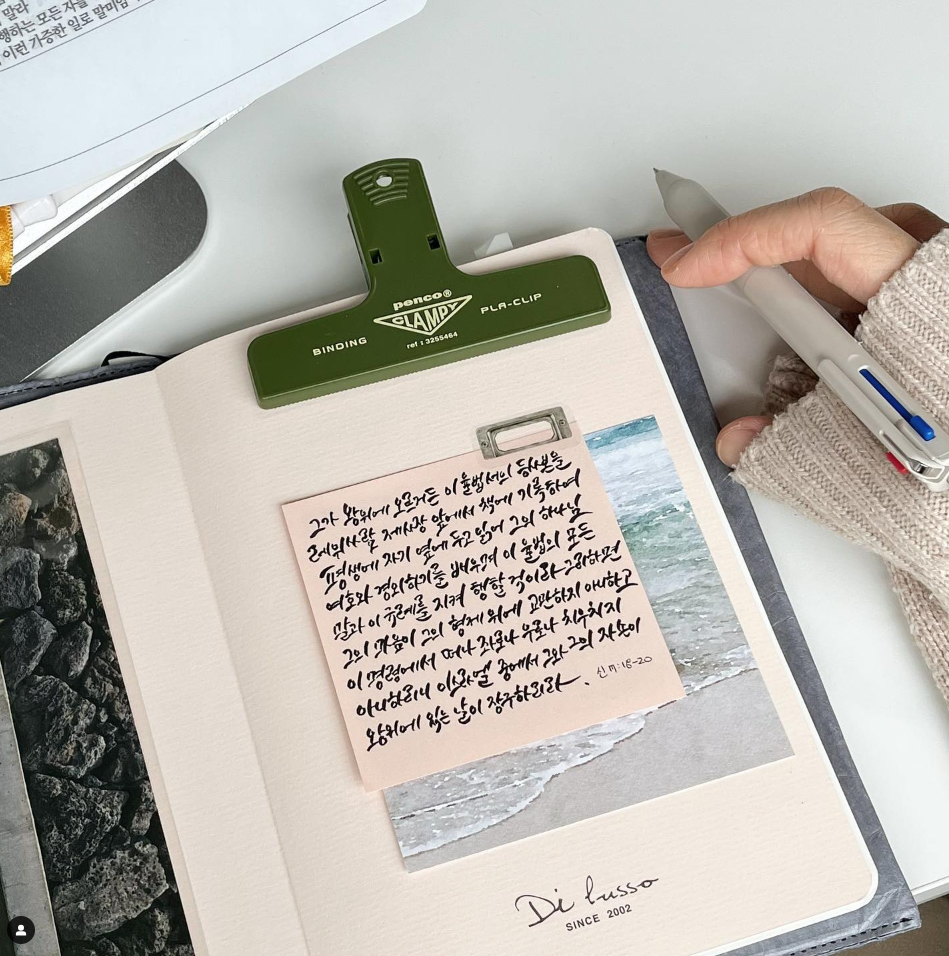 말라
행하는 모든 자를
이런 가증한 일로 말미암
penco®
CLAMPY
BINDING
PLA-CLIP
ref : 3255464
그가 왕위에 오르거든 이 율법서의 등사본을
레위사람 제사장 앞에서 책에 기록하여
평생에 자기 옆에 두고 읽어 그의 하나님
여호와 경외하기를 배우며 이 율법의 모든
말과 이 규례를 지켜 행할 것이라 그리하면
그의 마음이 그의 형제 위에 교만하지 아니하고
이 명령에서 떠나 좌로나 우로나 치우치지
아니하리니 이스라엘 중에서 그와 그의 자손이
왕위에 있는 날이 장구하리라.
신 17:18-20
Di lusso
SINCE 2002